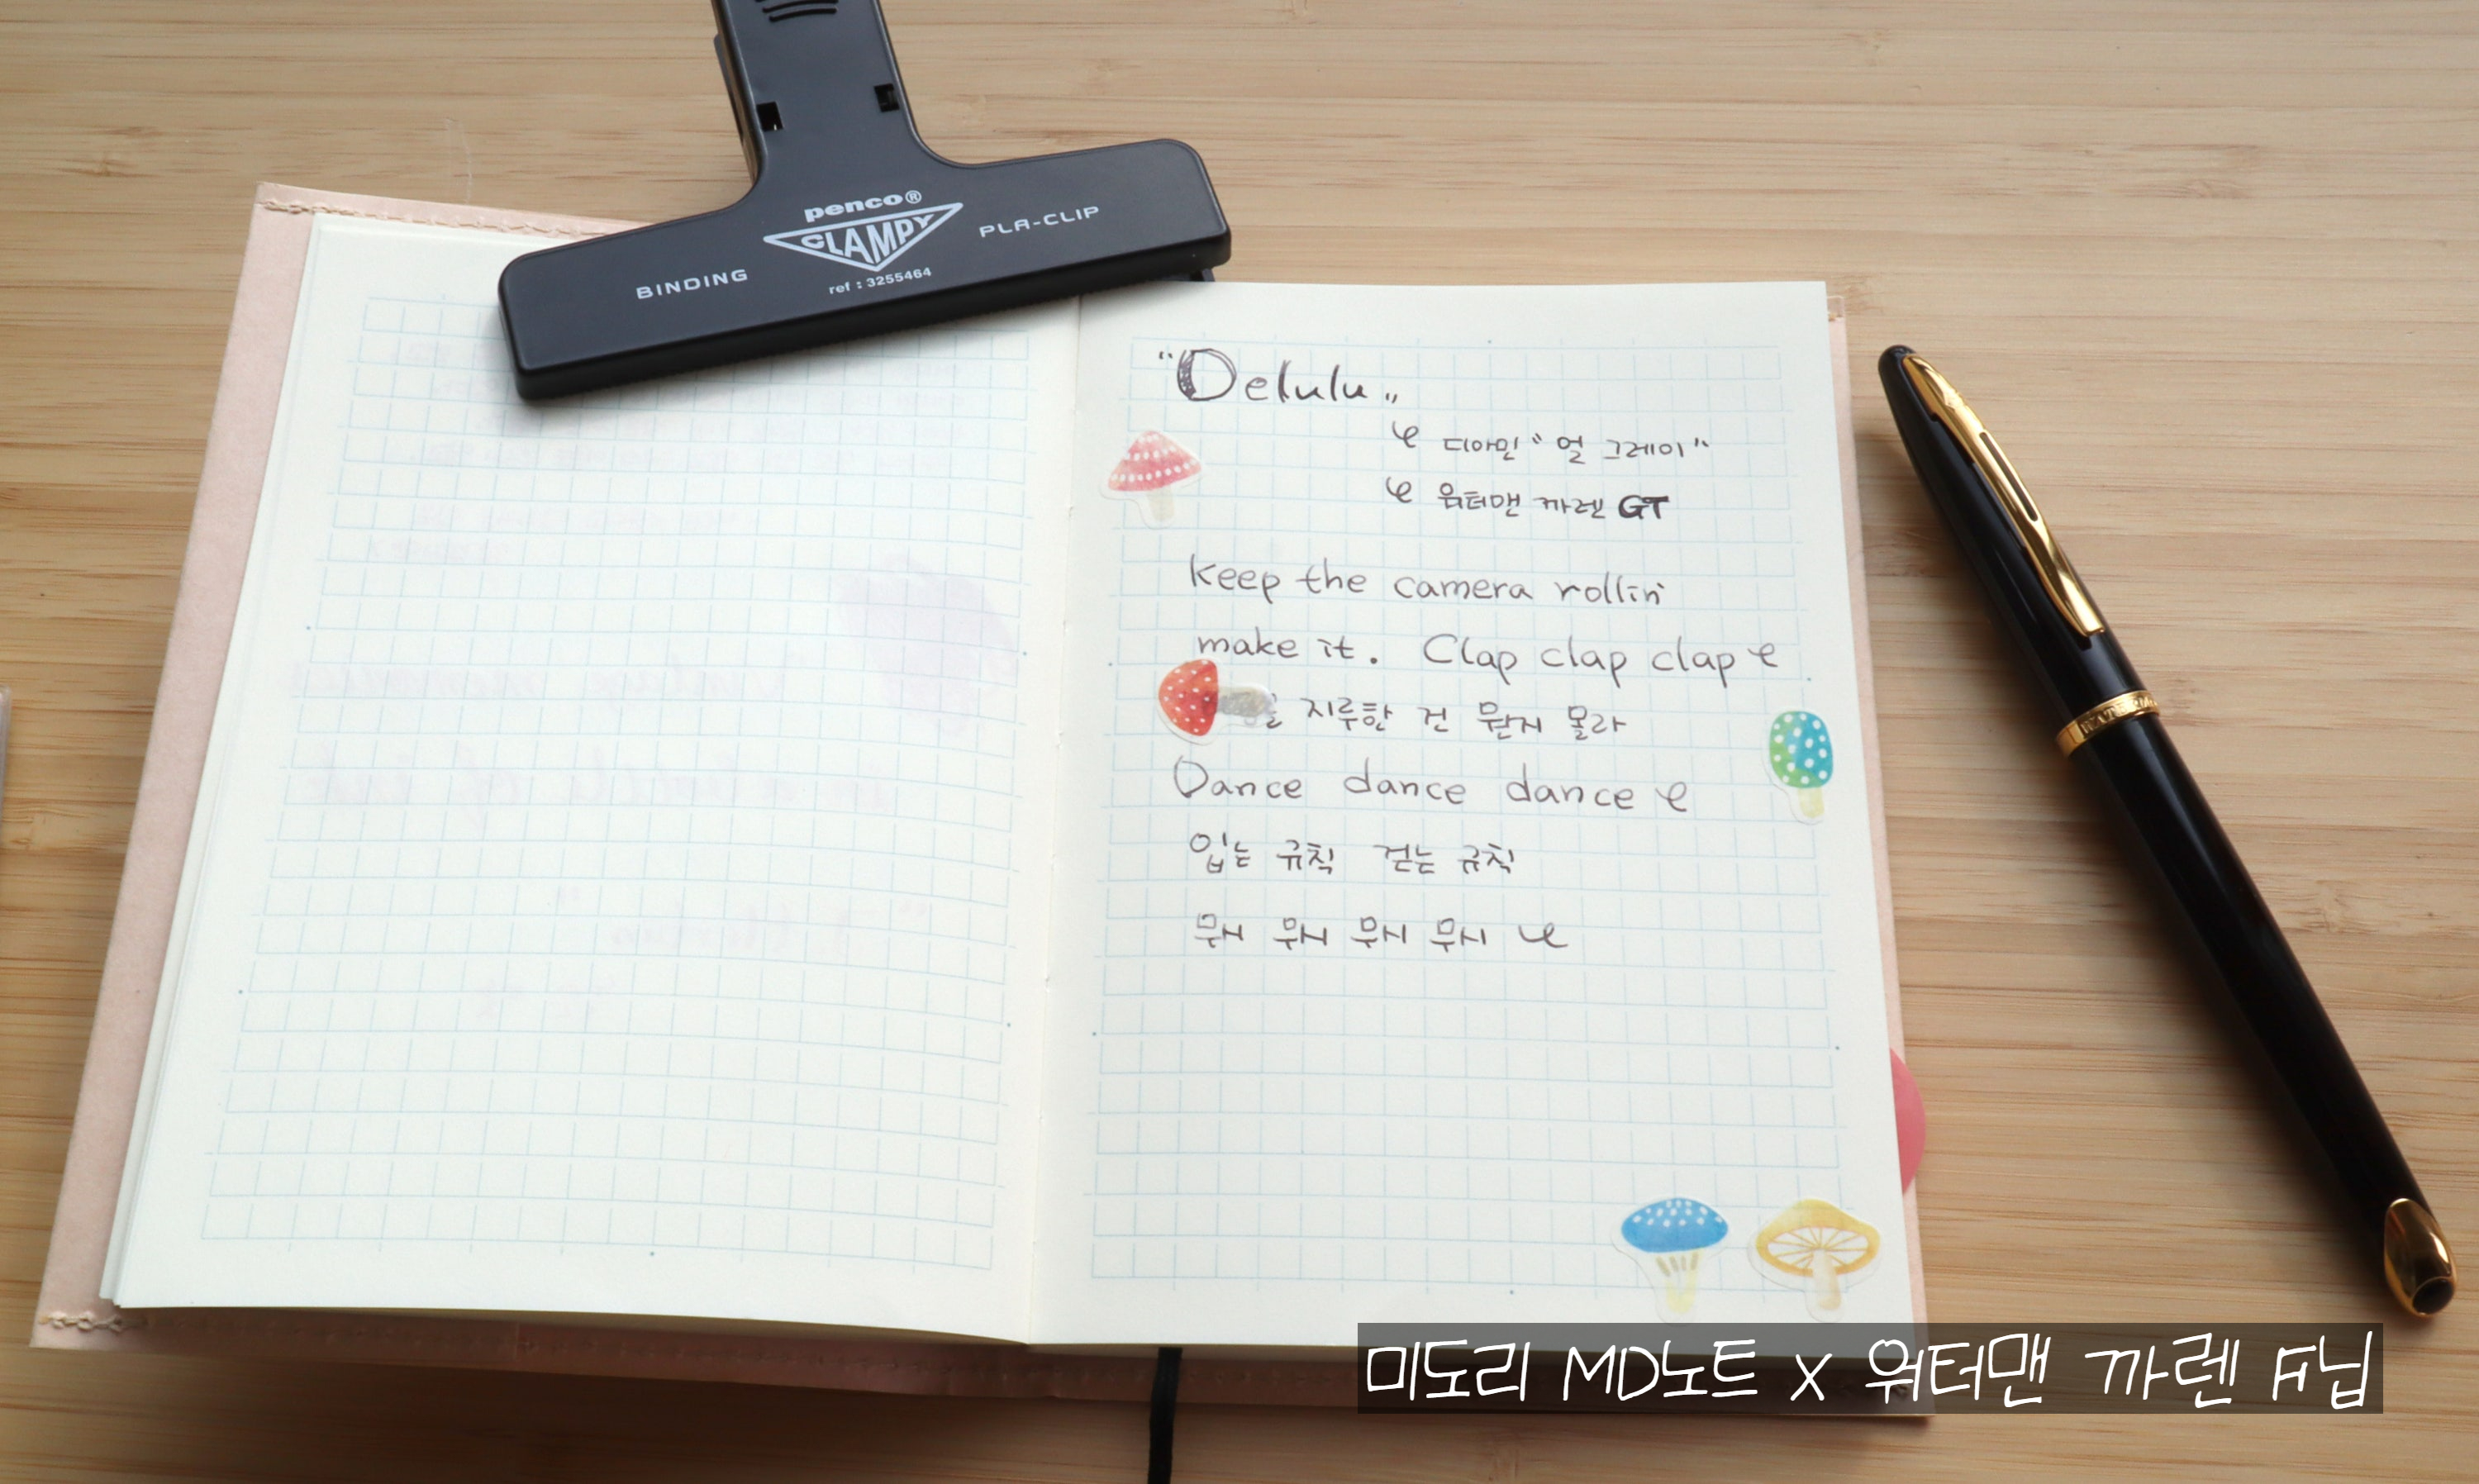 penco®
CLAMPY
BINDING
PLA-CLIP
ref : 3255464
"Delulu"
디아민 "얼 그레이"
워터맨 까렌 GT
Keep the camera rollin'
make it. Clap clap clap
지루한 건 뭔지 몰라
Dance dance dance
입는 규칙 걷는 규칙
무시 무시 무시 무시
미도리 MD노트 X 워터맨 까렌 F닙